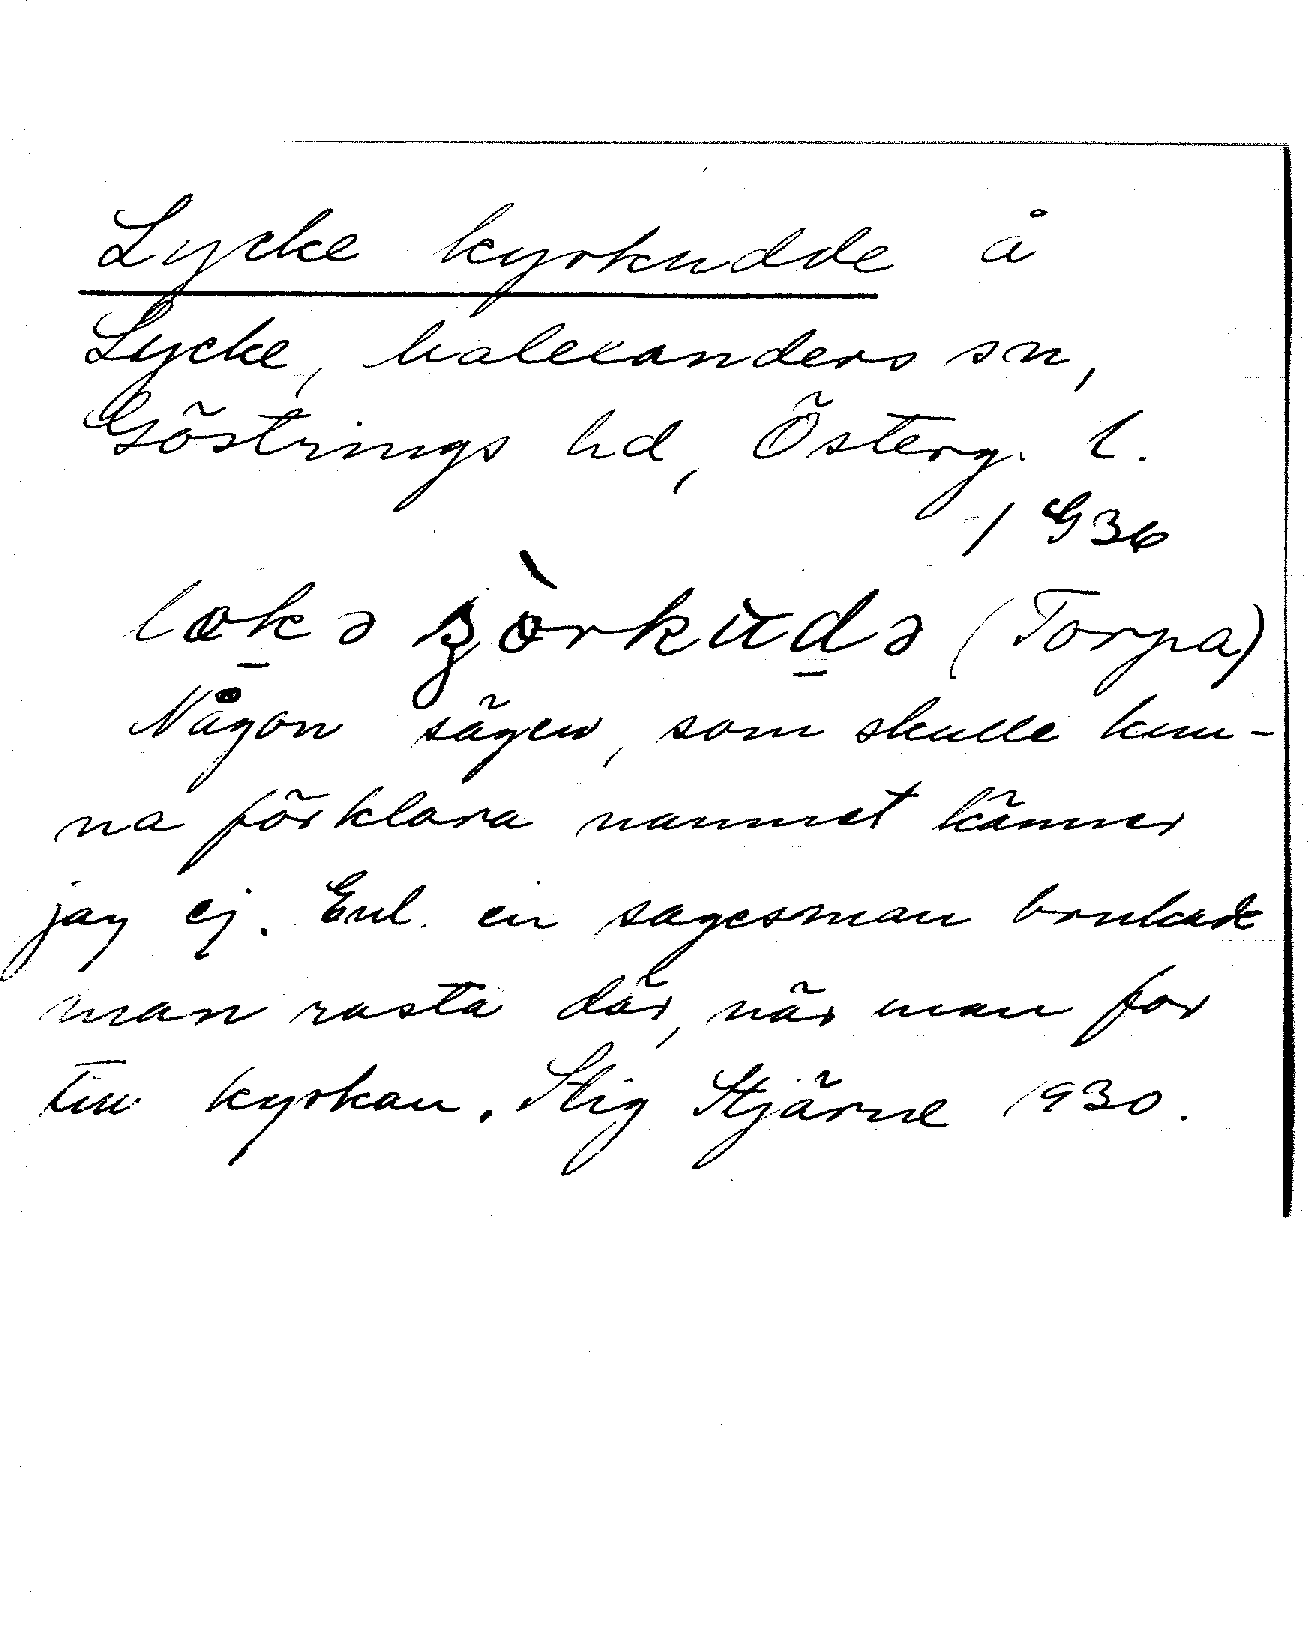 Lycke kyrkudde å
Lycke, Malexanders sn,
Göstrings hd, Österg. l.
/ G36
løkə ʒòrkudə (Torpa)
Någon sägen, som skulle kun-
na förklara namnet känner
jag ej. Enl. en sagesman brukade
man rasta där, när man for
till kyrkan. Stig Stjärne 1930.